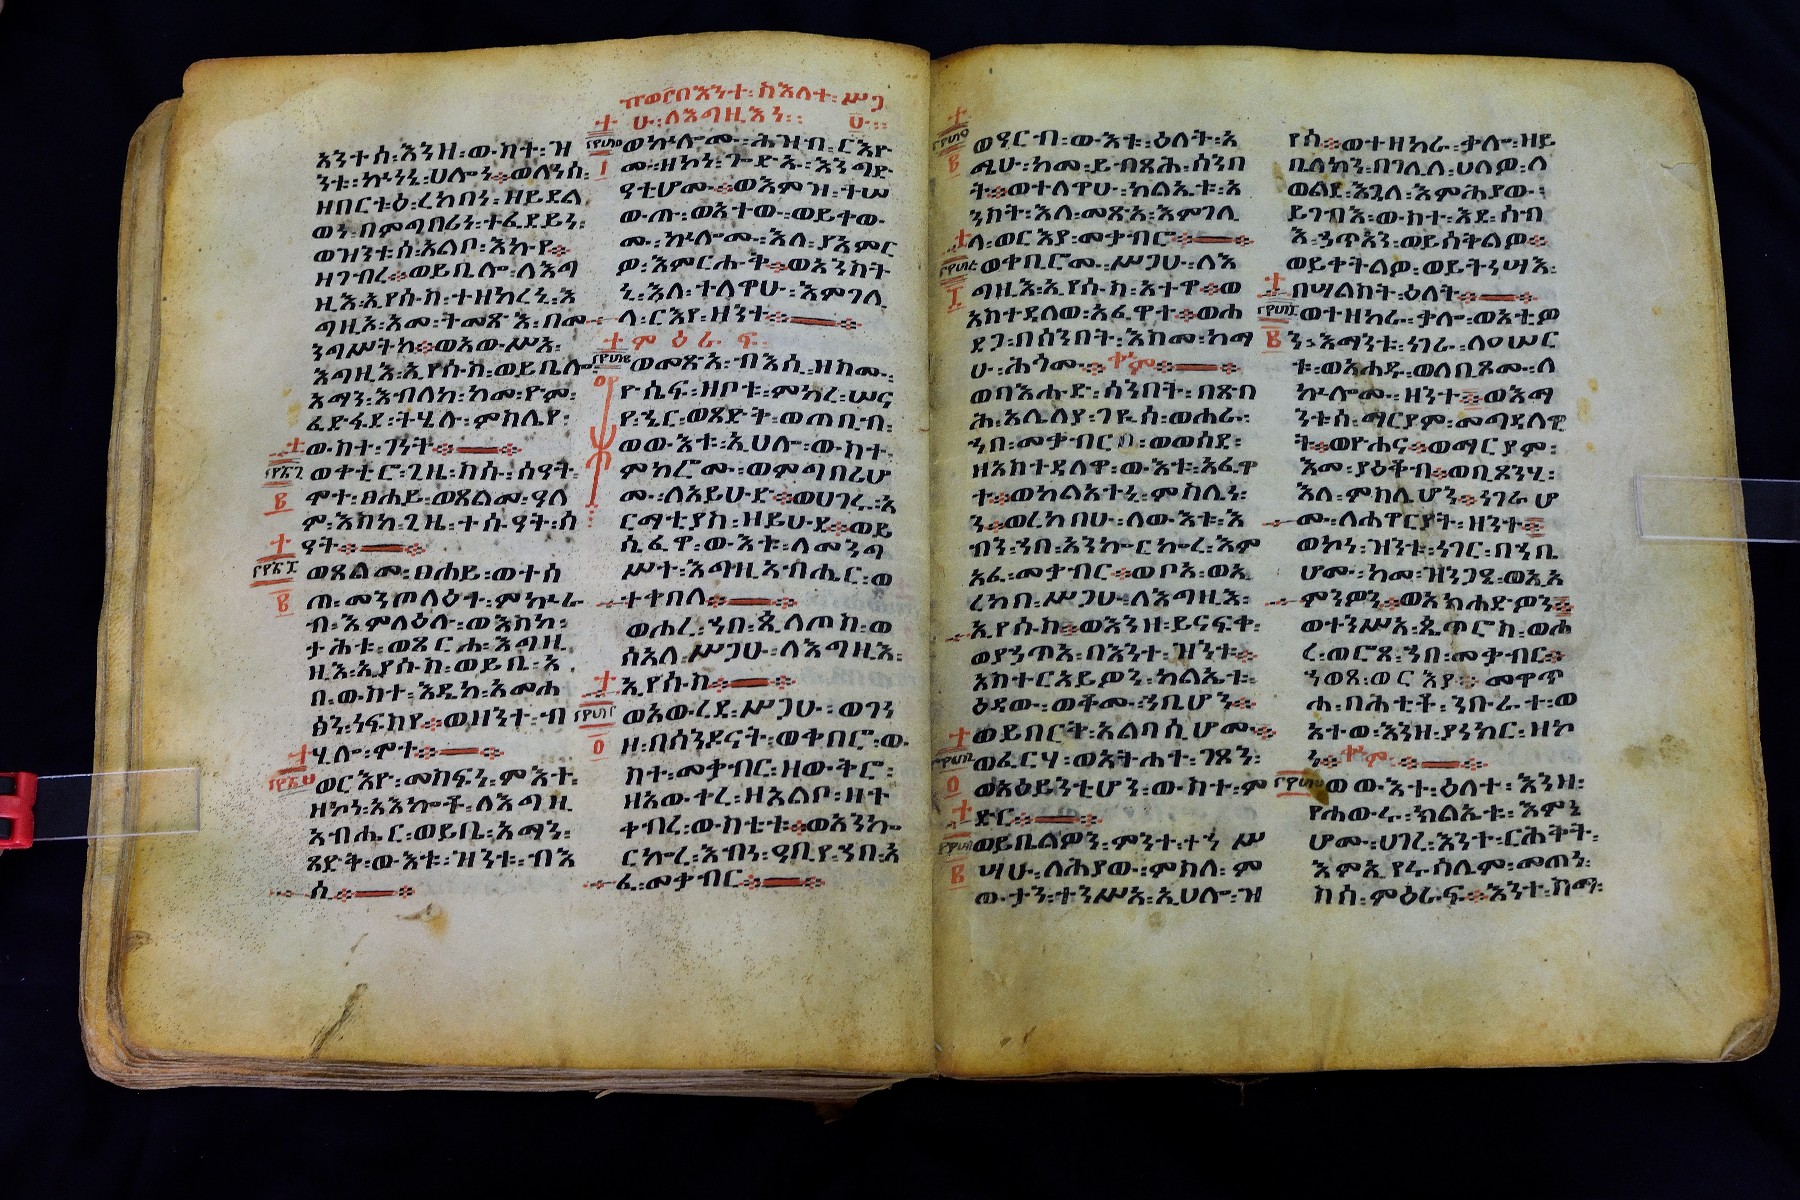 አንተሰ፡እንዘ፡ውስተ፡ዝ
ንቱ፡ኵነኔ፡ሀሎነ፨ወለነሰ፡
ዘበርቱዕ፡ረከበነ፡ዘይደል
ወነ፡በምግባሪነ፡ተፈደይነ፡
ወዝንቱሰ፡አልቦ፡እኩየ፨
ዘገብረ፨ወይቤሎ፡ለእግ
ዚእ፡ኢየሱስ፡ተዘከረኒ፡እ
ግዚኦ፡አመ፡ትመጽእ፡በመ
ንግሥትከ፨ወአውሥአ፡
እግዚእ፡ኢየሱስ፡ወይቤሎ፡
አማን፡እብለከ፡ከመ፡ዮም፡
ፈድፋደ፡ትሄሉ፡ምስሌየ፡
ውስተ፡ገነት፨
ወቀቲሮ፡ጊዜ፡ስሱ፡ሰዓት፡
ሞተ፡ፀሐይ፡ወጸልመ፡ዓለ
ም፡እስከ፡ጊዜ፡ተሱዓት፡ሰ
ዓት፨
ወጸልመ፡ፀሐይ፡ወተሰ
ጠ፡መንጦላዕተ፡ምኵራ
ብ፡እምላዕሉ፡ወእስከ፡
ታሕቱ፡ወጸርሐ፡እግዚ
እ፡ኢየሱስ፡ወይቤ፡አ
ባ፡ውስተ፡እዴከ፡አመሐ
ፅን፡ነፍስየ፨ወዘንተ፡ብ
ሂሎ፡ሞተ፨
ወርእዮ፡መስፍን፡ምእት፡
ዘኮነ፡አእኰቶ፡ለእግዚ
አብሔር፡ወይቤ፡አማን፡
ጻድቅ፡ውእቱ፡ዝንቱ፡ብእ
ሲ፨
በእንተ፡ስእለተ፡ሥጋ
ሁ፡ለእግዚእነ፡
ወኵሎሙ፡ሕዝብ፡ርእዮ
ሙ፡ዘኮነ፡ጉድአ፡እንግድ
ዓቲሆሙ፨ወእምዝ፡ተሠ
ውጡ፡ወአተው፡ወይቀው
ሙ፡ኵሎሙ፡እለ፡ያአምር
ዎ፡እምርሑቅ፨ወአንስት
ኒ፡እለ፡ተለዋሁ፡እምገሊ
ላ፡ርእየ፡ዘንተ፨
ምዕራፍ፡
ወመጽአ፡ብእሲ፡ዘስሙ፡
ዮሴፍ፡ዘቦቱ፡ምክረ፡ሠና
የ፡ኄር፡ወጻድቅ፡ወጠቢብ፡
ወውእቱ፡ኢሀሎ፡ውስተ፡
ምክሮሙ፡ወምግባሪሆ
ሙ፡ለአይሁድ፨ወሀገሩ፡አ
ርማቲያስ፡ዘይሁዳ፨ወይ
ሴፈዋ፡ውእቱ፡ለመንግ
ሥተ፡እግዚአብሔር፡ወ
ተቀበላ፨
ወሖረ፡ኀበ፡ጲላጦስ፡ወ
ሰአለ፡ሥጋሁ፡ለእግዚእ፡
ኢየሱስ፨
ወአውረደ፡ሥጋሁ፡ወገነ
ዘ፡በሰንዶናት፡ወቀበሮ፡ው
ስተ፡መቃብር፡ዘውቅሮ፡
ዘአውቀረ፡ዘአልቦ፡ዘተ
ቀብረ፡ውስቴቱ፨ወአንኰ
ርኰረ፡እብነ፡ዓቢየ፡ኀበ፡አ
ፈ፡መቃብር፨
ወዓርብ፡ውእቱ፡ዕለት፡እ
ሚሁ፡ከመ፡ይብጻሕ፡ሰንበ
ት፨ወተለዋሁ፡ክልኤቱ፡አ
ንስት፡እለ፡መጽአ፡እምገሊ
ላ፡ወርእያ፡መቃብሮ፨
ወቀቢሮሙ፡ሥጋሁ፡ለእ
ግዚእ፡ኢየሱስ፡አተዋ፨ወ
አስተዳለወ፡አፈዋተ፨ወሐ
ደጋ፡በሰንበት፡እስመ፡ከማ
ሁ፡ሕጎሙ፨
ወበእሑድ፡ሰንበት፡በጽባ
ሕ፡አሌሊያ፡ገዪሰ፡ወሖራ፡
ኀበ፡መቃብር፡ወወሰደ፡
ዘአስተዳለዋ፡ውእቱ፡አፈዋ
ተ፨ወካልአትኒ፡ምስሌን፡
ን፨ወረከባሁ፡ለውእቱ፡እ
ብን፡ኀበ፡አንኰርኰረ፡እም
አፈ፡መቃብር፨ወቦአ፡ወኢ
ረከባ፡ሥጋሁ፡ለእግዚእ፡
ኢየሱስ፨ወእንዘ፡ይናፍቃ፡
ወያኀጥአ፡በእንተ፡ዝንቱ፨
አስተርአይዎን፡ክልኤቱ፡
ዕደው፡ወቆሙ፡ኀቤሆን፨
ወይበርቅ፡አልባሲሆሙ፨
ወፈርሃ፡ወአትሐታ፡ገጾን፡
ወአዕይንቲሆን፡ውስተ፡ም
ድር፨
ወይቤልዎን፡ምንተ፡ተኀሥ
ሣሁ፡ለሕያው፡ምስለ፡ም
ውታን፡ተንሥአ፡ኢሀሎ፡ዝ
የሰ፨ወተዘከራ፡ቃሎ፡ዘይ
ቤለክን፡በገሊላ፡ሀለዎ፡ለ
ወልደ፡እጓለ፡እምሕያው፡
ይገብእ፡ውስተ፡እደ፡ሰብ
እ፡ኃጥአን፡ወይሰቅልዎ፨
ወይቀትልዎ፡ወይትነሣእ፡
በሣልስት፡ዕለት፨
ወተዘከራ፡ቃሎ፡ወአቲዎ
ን፡አማንቱ፡ነገራ፡ለዐሠር
ቱ፡ወአሐዱ፡ወለቢጾሙ፡ለ
ኵሎሙ፡ዘንተ፡ወእማ
ንቱሰ፡ማርያም፡መግደላዊ
ት፨ወዮሐና፨ወማርያም፡
እመ፡ያዕቆብ፨ወቢጾንሂ፡
እለ፡ምስሌሆን፨ነገራሆ
ሙ፡ለሐዋርያት፡ዘንተ፨
ወኮነ፡ዝንቱ፡ነገር፡በኀቤ
ሆሙ፡ከመ፡ዝንጋዔ፡ወኢአ
ምንዎን፨ወአስሐድዎን፨
ወተንሥአ፡ጴጥሮስ፡ወሖ
ረ፡ወሮጸ፡ኀበ፡መቃብር፨
ኀወጸ፡ወርእየ፡መዋጥ
ሐ፡በሕቲቶ፡ንቡራተ፡ወ
አተወ፡እንዘ፡ያነክር፡ዘኮ
ነ፨
ወውእተ፡ዕለተ፡እንዘ፡
የሐውሩ፡ክልኤቱ፡እምኔ
ሆሙ፡ሀገረ፡እንተ፡ርሕቅት፡
እምኢየሩሳሌም፡መጠነ፡
ስሳ፡ምዕራፍ፨እንተ፡ስማ፡